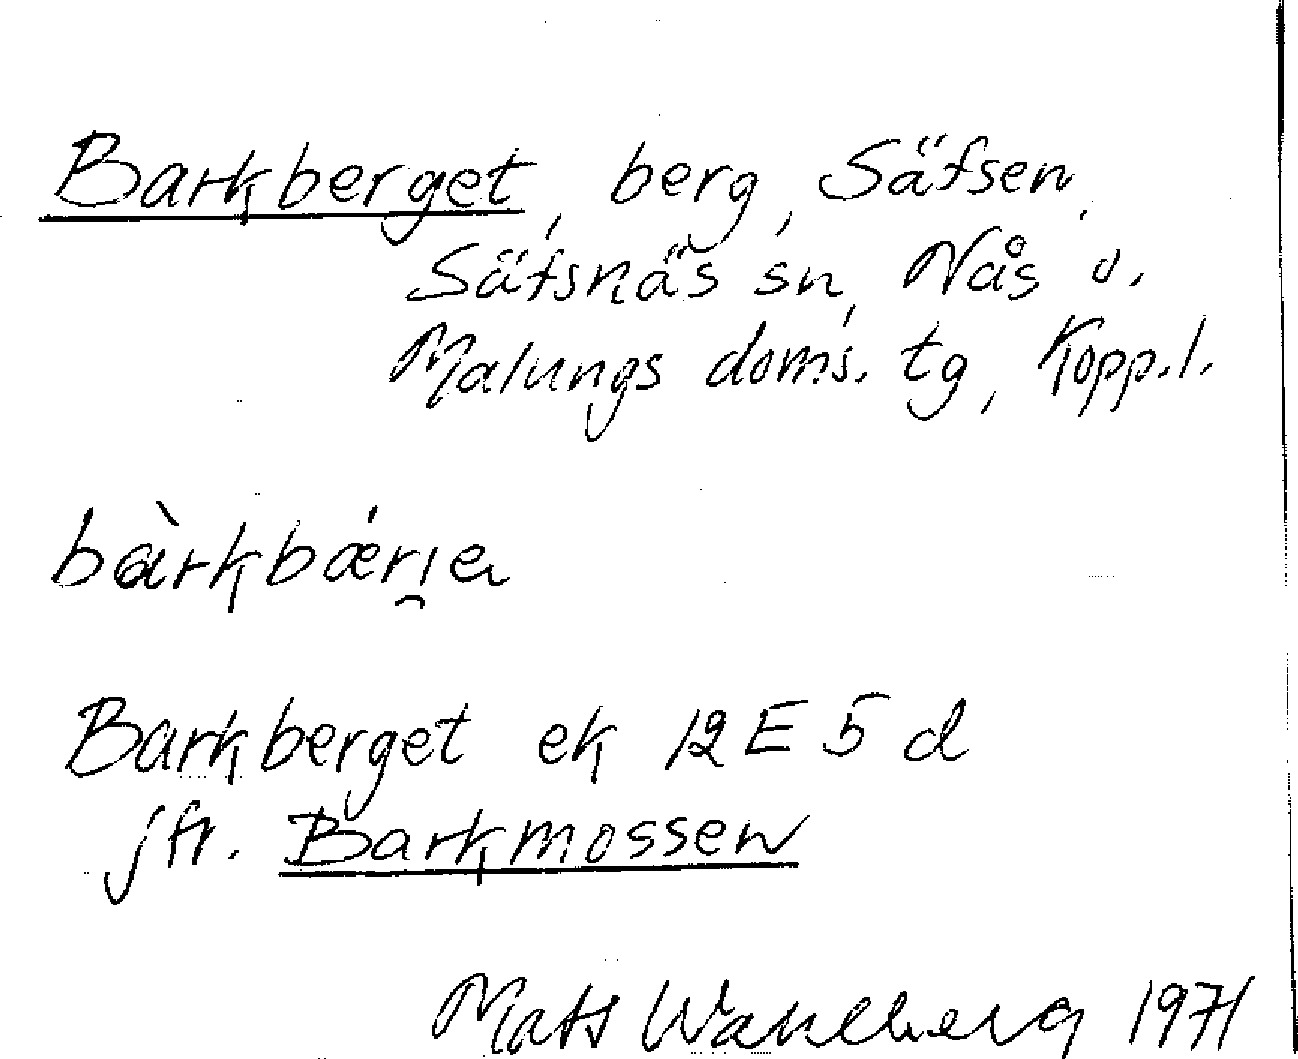 Barkberget, berg, Säfsen,
Säfsnäs sn, Nås o.
Malungs doms. tg, Kopp.l.
bàrkbǽri̯a
Barkberget ek 12 E 5 d
jfr. Barkmossen
Mats Wahlberg 1971